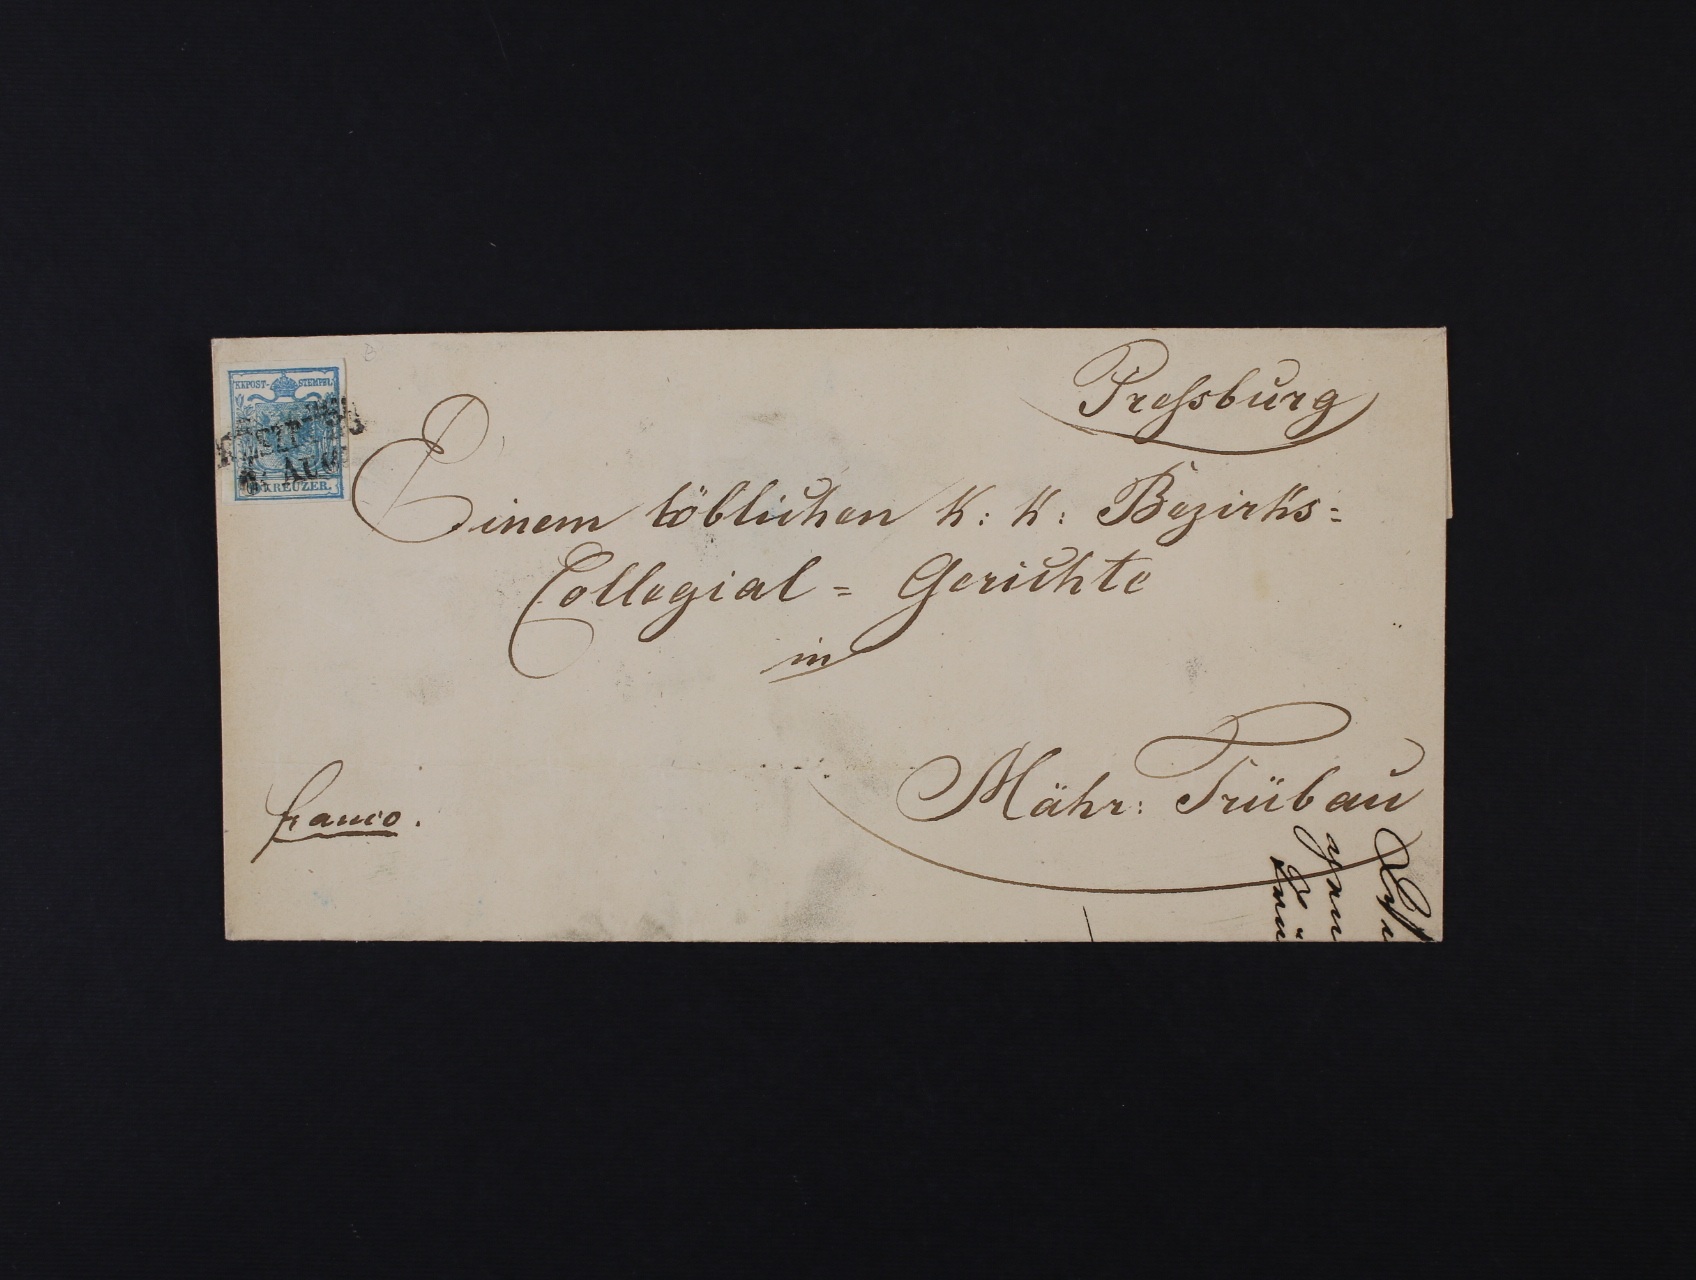 KKPOST-STEMPEL
AUG
KREUZER.
Preßburg
Einem löblichen K: K: Bezirks=
Collegial = Gerichte
in
Mähr: Trübau
franco.